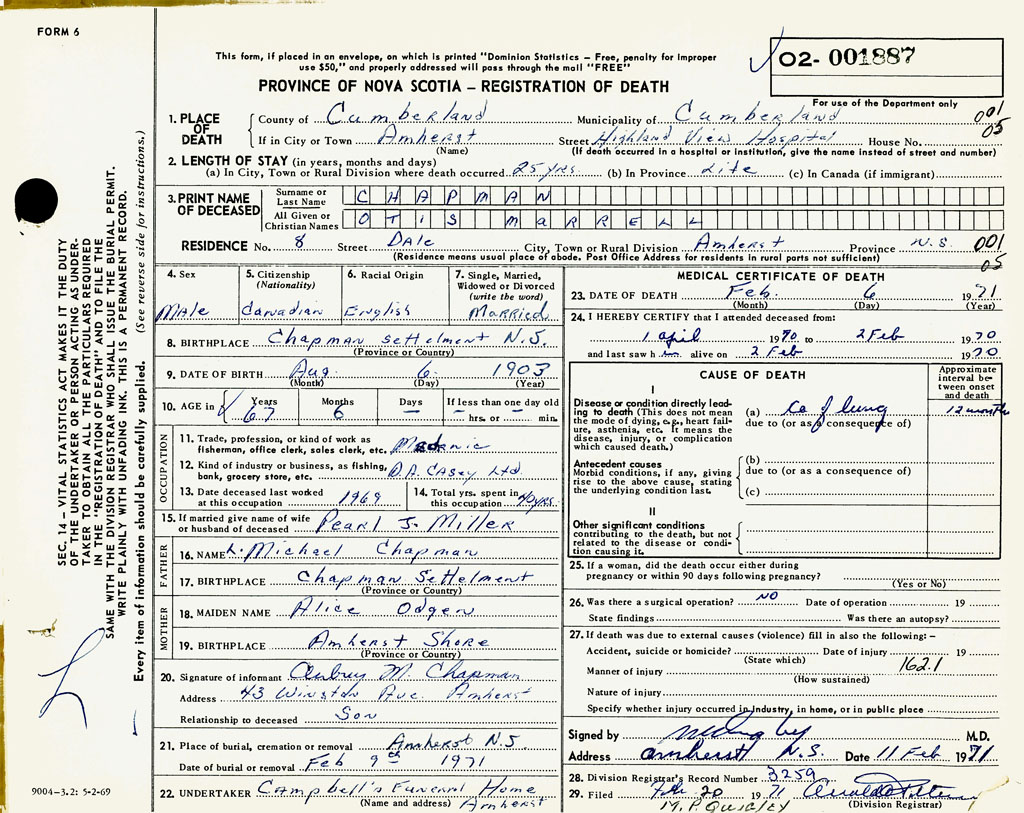 FORM 6
This form, if placed in an envelope, on which is printed "Dominion Statistics – Free, penalty for improper
use $50," and properly addressed will pass through the mail "FREE"
O2- 001887
PROVINCE OF NOVA SCOTIA – REGISTRATION OF DEATH
For use of the Department only
1. PLACE OF DEATH County of Cumberland Municipality of Cumberland 001
If in City or Town Amherst Street Highland View Hospital House No. 05
(Name) (If death occurred in a hospital or institution, give the name instead of street and number)
2. LENGTH OF STAY (in years, months and days)
(a) In City, Town or Rural Division where death occurred 25 yrs. (b) In Province Life (c) In Canada (if immigrant)
3. PRINT NAME OF DECEASED Surname or Last Name CHAPMAN
All Given or Christian Names OTIS MARRELL
RESIDENCE No. 8 Street Dale City, Town or Rural Division Amherst Province N.S. 001
(Residence means usual place of abode. Post Office Address for residents in rural parts not sufficient) 05
4. Sex Male
5. Citizenship (Nationality) Canadian
6. Racial Origin English
7. Single, Married, Widowed or Divorced (write the word) Married
8. BIRTHPLACE Chapman Settelment N.S.
(Province or Country)
9. DATE OF BIRTH Aug. 6 1903
(Month) (Day) (Year)
10. AGE in Years 67 Months 6 Days If less than one day old
hrs. or min.
OCCUPATION
11. Trade, profession, or kind of work as
fisherman, office clerk, sales clerk, etc.
12. Kind of industry or business, as fishing,
bank, grocery store, etc. D.A. Casey Ltd.
13. Date deceased last worked
at this occupation 1969
14. Total yrs. spent in
this occupation 40 yrs.
15. If married give name of wife
or husband of deceased Pearl J. Miller
FATHER
16. NAME L. Michael Chapman
17. BIRTHPLACE Chapman Settelment
(Province or Country)
MOTHER
18. MAIDEN NAME Alice Odgen
19. BIRTHPLACE Amherst Shore
(Province or Country)
20. Signature of informant Aubry M. Chapman
Address 43 Winston Ave. Amherst
Relationship to deceased Son
21. Place of burial, cremation or removal Amherst N.S.
Date of burial or removal Feb 9th 1971
22. UNDERTAKER Campbell's Funeral Home
(Name and address) Amherst
MEDICAL CERTIFICATE OF DEATH
23. DATE OF DEATH Feb. 6 1971
(Month) (Day) (Year)
24. I HEREBY CERTIFY that I attended deceased from:
1 april 1970 to 2 Feb 1970
and last saw h im alive on 2 Feb 1970
CAUSE OF DEATH
Approximate interval between onset and death
I
Disease or condition directly leading
to death (This does not mean
the mode of dying, e.g., heart failure,
asthenia, etc. It means the
disease, injury, or complication
which caused death.)
(a) Ca of lung 12 months
due to (or as a consequence of)
Antecedent causes
Morbid conditions, if any, giving
rise to the above cause, stating
the underlying condition last.
(b)
due to (or as a consequence of)
(c)
II
Other significant conditions
contributing to the death, but not
related to the disease or condition
causing it.
25. If a woman, did the death occur either during
pregnancy or within 90 days following pregnancy?
(Yes or No)
26. Was there a surgical operation? NO Date of operation 19
State findings Was there an autopsy?
27. If death was due to external causes (violence) fill in also the following: –
Accident, suicide or homicide? Date of injury 19
(State which) 162.1
Manner of injury
(How sustained)
Nature of injury
Specify whether injury occurred in industry, in home, or in public place
Signed by M.D.
Address amherst N.S. Date 11 Feb 1971
28. Division Registrar's Record Number 3259
29. Filed Feb. 20 1971
(Division Registrar)
M.P. Quigley
SEC. 14 – VITAL STATISTICS ACT MAKES IT THE DUTY
OF THE UNDERTAKER OR PERSON ACTING AS UNDER-
TAKER TO OBTAIN ALL THE PARTICULARS REQUIRED
IN THE "REGISTRATION OF DEATH" AND TO FILE THE
SAME WITH THE DIVISION REGISTRAR WHO SHALL ISSUE THE BURIAL PERMIT.
WRITE PLAINLY WITH UNFADING INK. THIS IS A PERMANENT RECORD.
Every item of information should be carefully supplied. (See reverse side for instructions.)
9004-3.2: 5-2-69